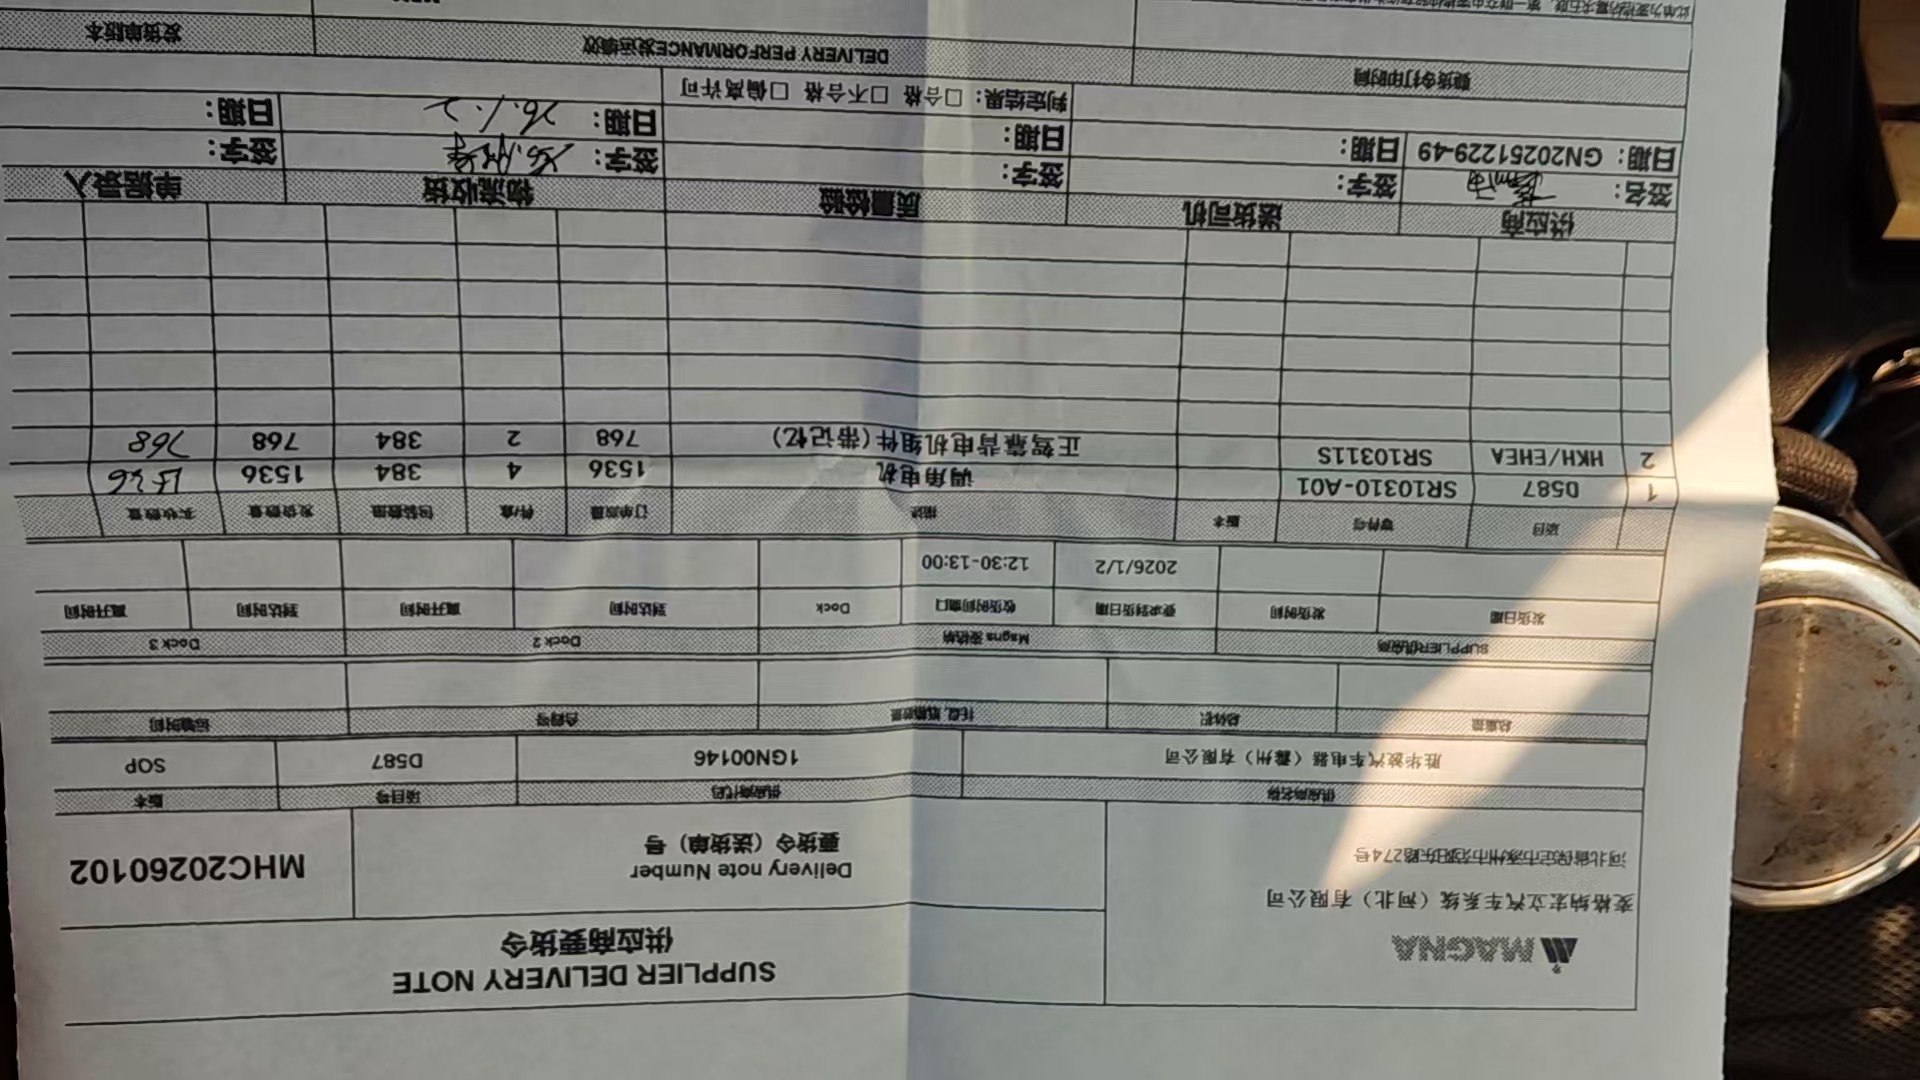 MAGNA
麦格纳宏立汽车系统（河北）有限公司
河北省保定市涿州市范阳东路274号
SUPPLIER DELIVERY NOTE
供应商要货令
Delivery note Number
要货令（送货单）号
MHC20260102
供应商名称 供应商代码 项目号 版本
胜华波汽车电器（ ）有限公司 1GN00146 D587 SOP
总重量 总体积 托盘,纸箱数量 合同号 运输时间
SUPPLIER供应商 Magna 麦格纳 Dock 2 Dock 3
发货日期 发货时间 要求到货日期 收货时间窗口 Dock 到达时间 离开时间 到达时间 离开时间
2026/1/2 12:30-13:00
项目 零件号 版本 描述 订单数量 件/盒 包装数量 发货数量 实收数量
1 D587 SR10310-A01 调角电机 1536 4 384 1536 1536
2 HKH/EHEA SR10311S 正驾靠背电机组件（带记忆） 768 2 384 768 768
供应商 送货司机 质量检验 物流收货 单据录入
签名： 签字： 签字： 签字： 签字：
日期：GN20251229-49 日期： 日期： 日期：26.1.2 日期：
判定结果：□合格 □不合格 □偏离许可
要货令打印时间 DELIVERY PERFORMANCE发运绩效 发货单版本